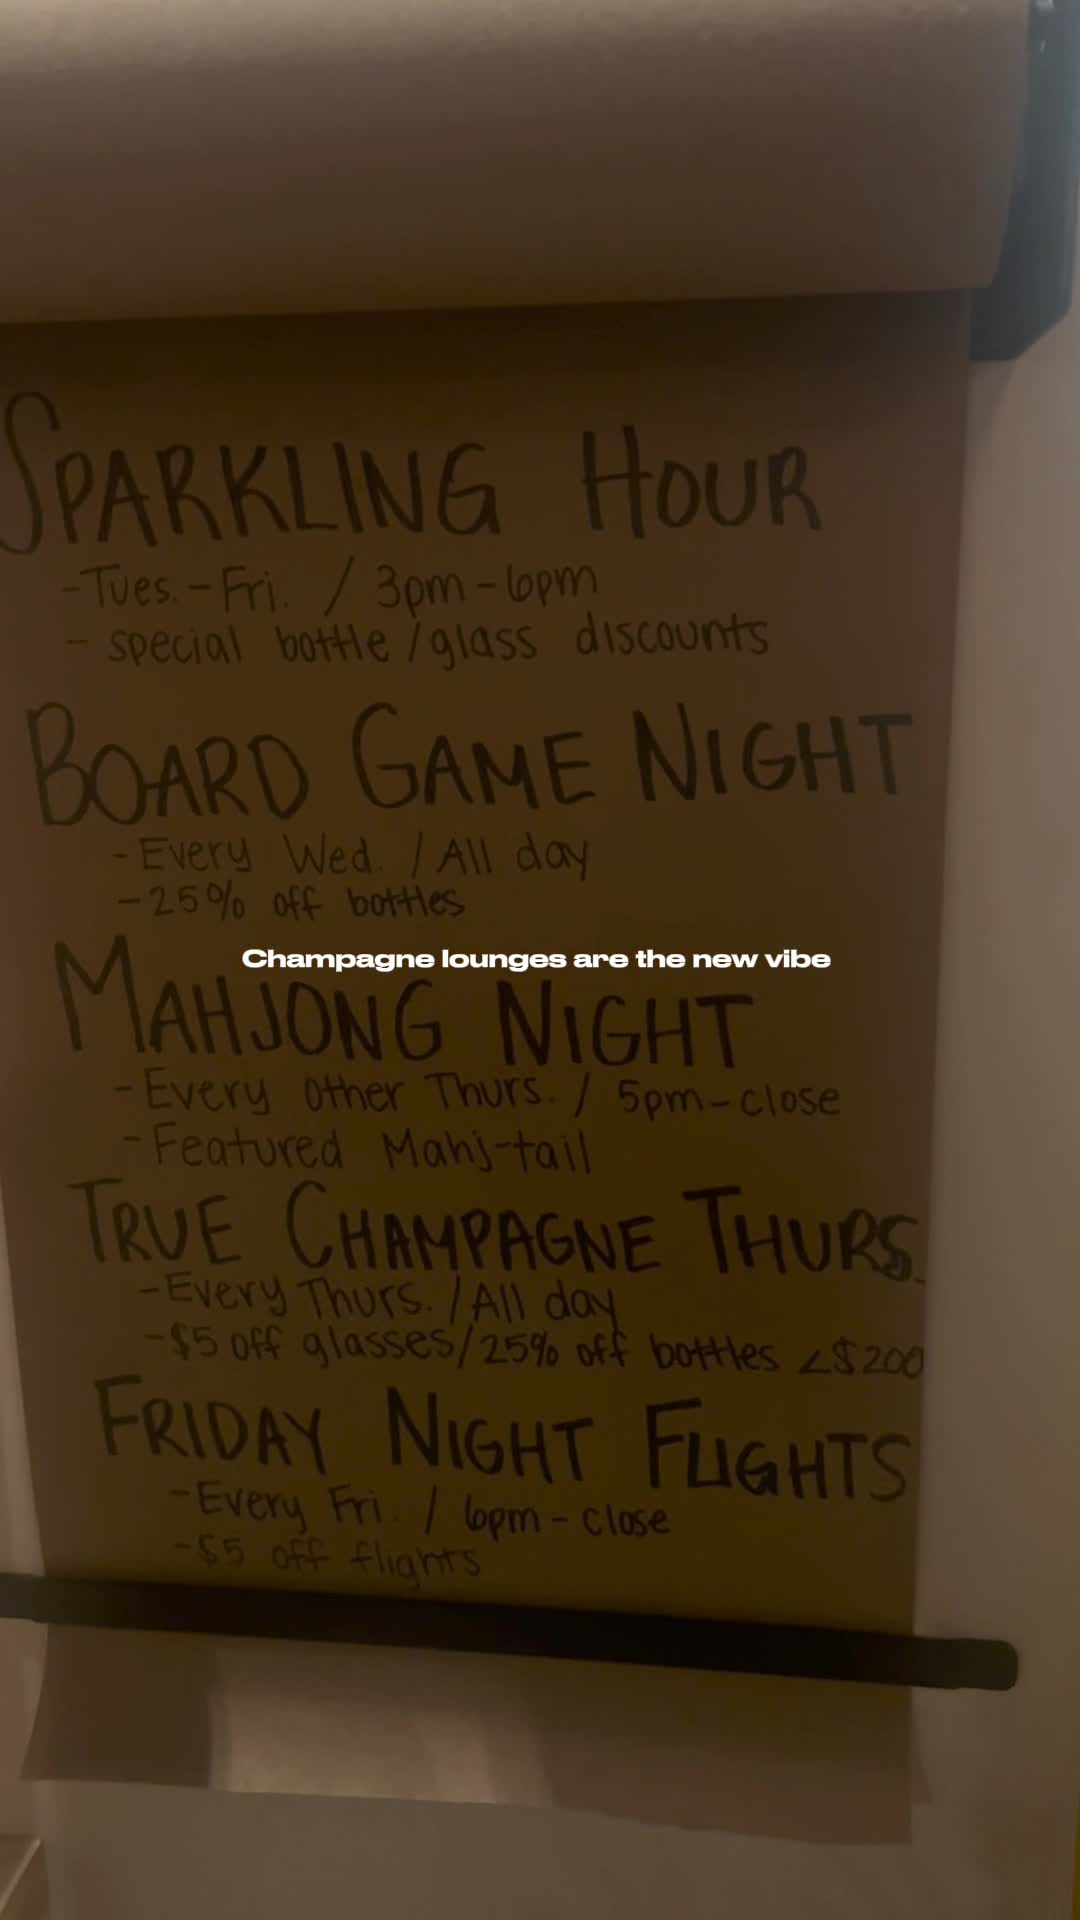 SPARKLING HOUR
-Tues.-Fri. / 3pm-6pm
- special bottle/glass discounts
BOARD GAME NIGHT
-Every Wed. /All day
-25% off bottles
Champagne lounges are the new vibe
MAHJONG NIGHT
-Every other Thurs. / 5pm-close
-Featured Mahj-tail
TRUE CHAMPAGNE THURS.
-Every Thurs. /All day
-$5 off glasses/25% off bottles <$200
FRIDAY NIGHT FLIGHTS
-Every Fri. / 6pm-close
-$5 off flights